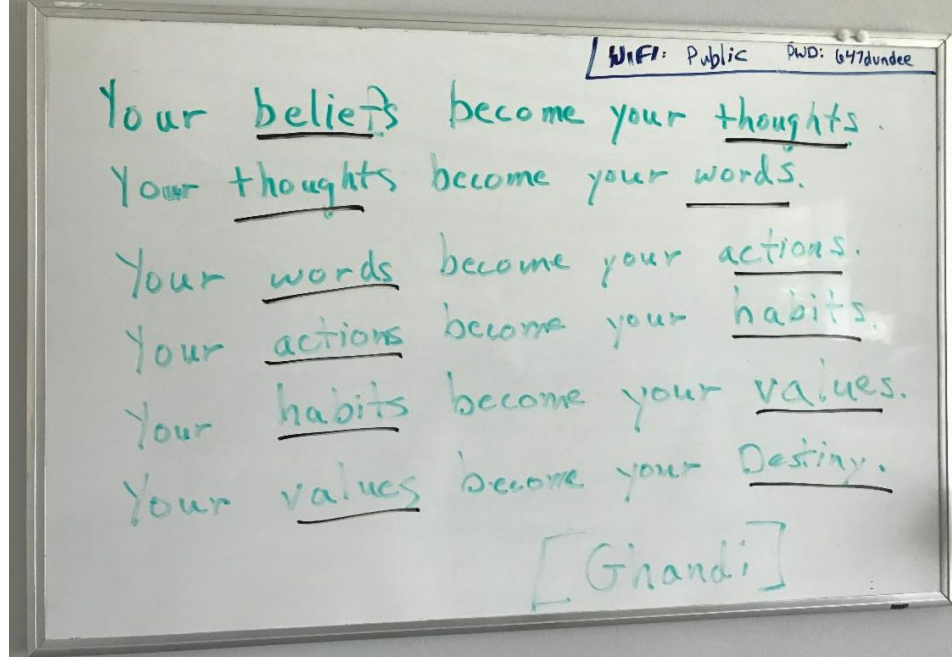 WIFI: Public PWD: 647dundee
Your beliefs become your thoughts.
Your thoughts become your words.
Your words become your actions.
Your actions become your habits.
Your habits become your values.
Your values become your Destiny.
[Ghandi]